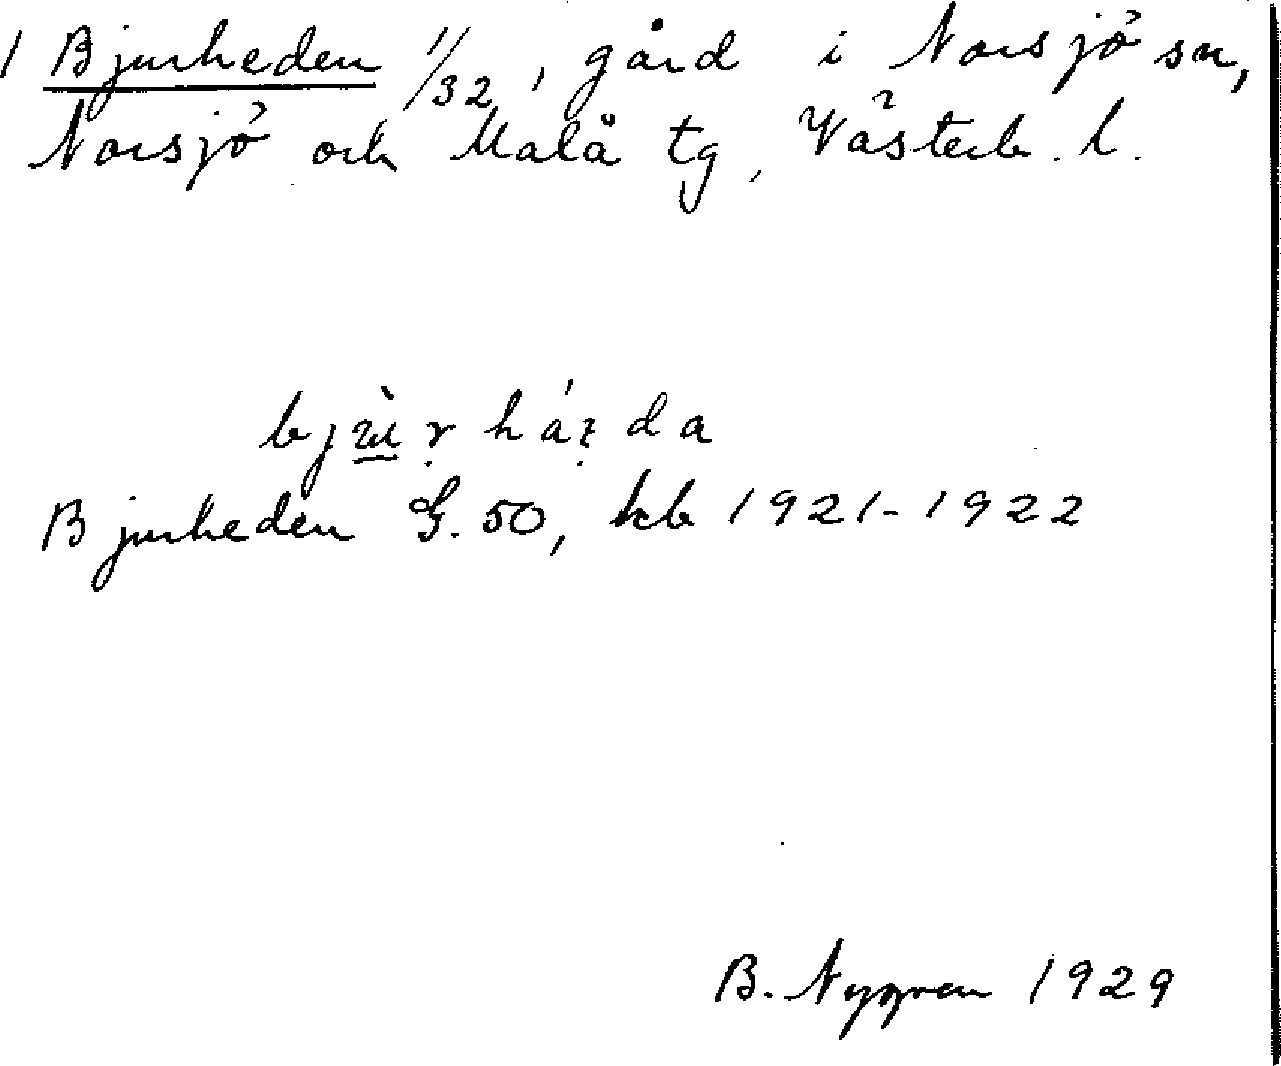 1 Bjurheden 1/32, gård i Norsjö sn,
Norsjö och Malå tg, Västerb. l.
Bjurheden G. 50, kb 1921-1922
B. Nygren 1929